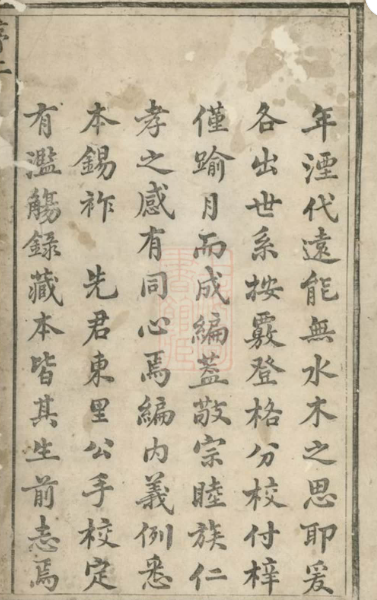 年湮代遠能無水木之思耶爰
各出世系按覈登格分校付梓
僅踰月而成編蓋敬宗睦族仁
孝之感有同心焉編內義例悉
本錫祚　先君東里公手校定
有濫觴錄藏本皆其生前志焉